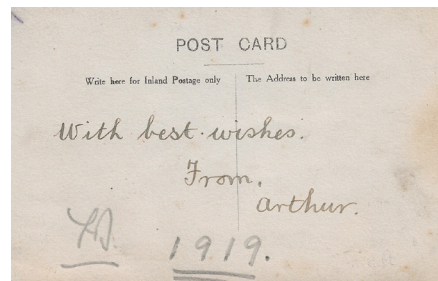 POST CARD
Write here for Inland Postage only
The Address to be written here
With best wishes.
From,
Arthur.
1919.